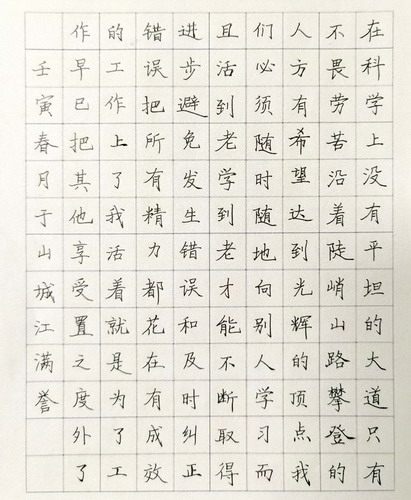 在科学上没有平坦的大道只有
不畏劳苦沿着陡峭山路攀登的
人方有希望达到光辉的顶点我
们必须随时随地向别人学习而
且活到老学到老才能不断取得
进步避免发生错误和及时纠正
错误把所有精力都花在有成效
的工作上了我活着就是为了工
作早已把其他享受置之度外了
壬寅春月于山城江满誉